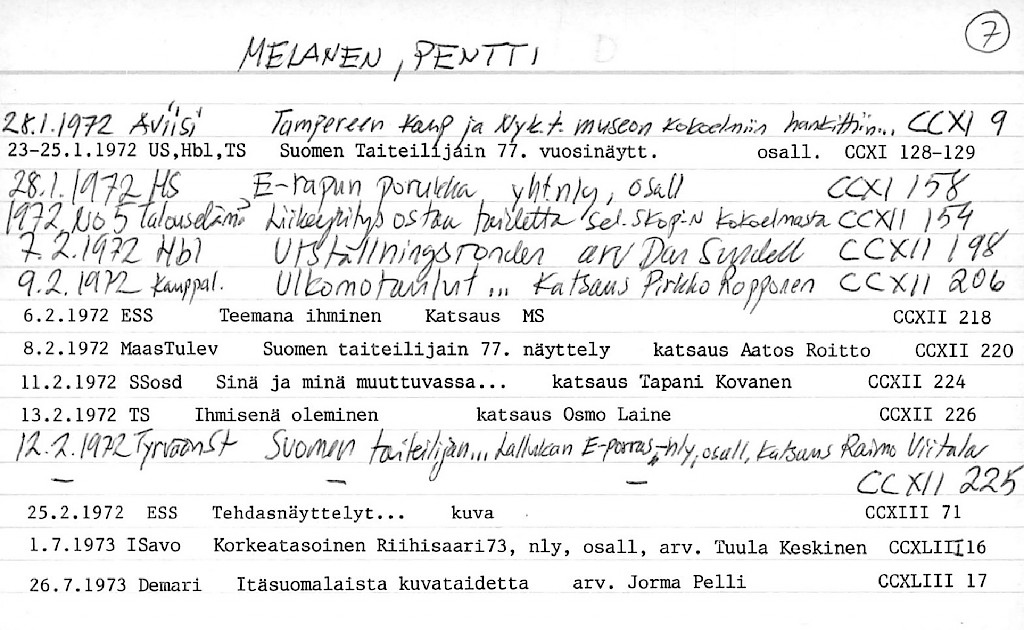 7
MELANEN, PENTTI
28.1.1972 Aviisi Tampereen kaup ja Nyk.t. museon kokoelmiin hankittiin... CCXI 9
23-25.1.1972 US,Hbl,TS Suomen Taiteilijain 77. vuosinäytt. osall. CCXI 128-129
28.1.1972 HS E-rapun porukka yht.nly, osall CCXI 158
1972, No 5 Talouselämä Liikeyritys ostaa taidetta sel. Skop:n kokoelmasta CCXII 154
7.2.1972 Hbl Utställningsronden arv Dan Sundell CCXII 198
9.2.1972 Kauppal. Ulkomotaulut... Katsaus Pirkko Ropponen CCXII 206
6.2.1972 ESS Teemana ihminen Katsaus MS CCXII 218
8.2.1972 MaasTulev Suomen taiteilijain 77. näyttely katsaus Aatos Roitto CCXII 220
11.2.1972 SSosd Sinä ja minä muuttuvassa... katsaus Tapani Kovanen CCXII 224
13.2.1972 TS Ihmisenä oleminen katsaus Osmo Laine CCXII 226
12.2.1972 TyrväänSt Suomen taiteilijain... Lallukan E-porras-nly, osall, Katsaus Raimo Viitala
— — — CCXII 225
25.2.1972 ESS Tehdasnäyttelyt... kuva CCXIII 71
1.7.1973 ISavo Korkeatasoinen Riihisaari73, nly, osall, arv. Tuula Keskinen CCXLIII 16
26.7.1973 Demari Itäsuomalaista kuvataidetta arv. Jorma Pelli CCXLIII 17